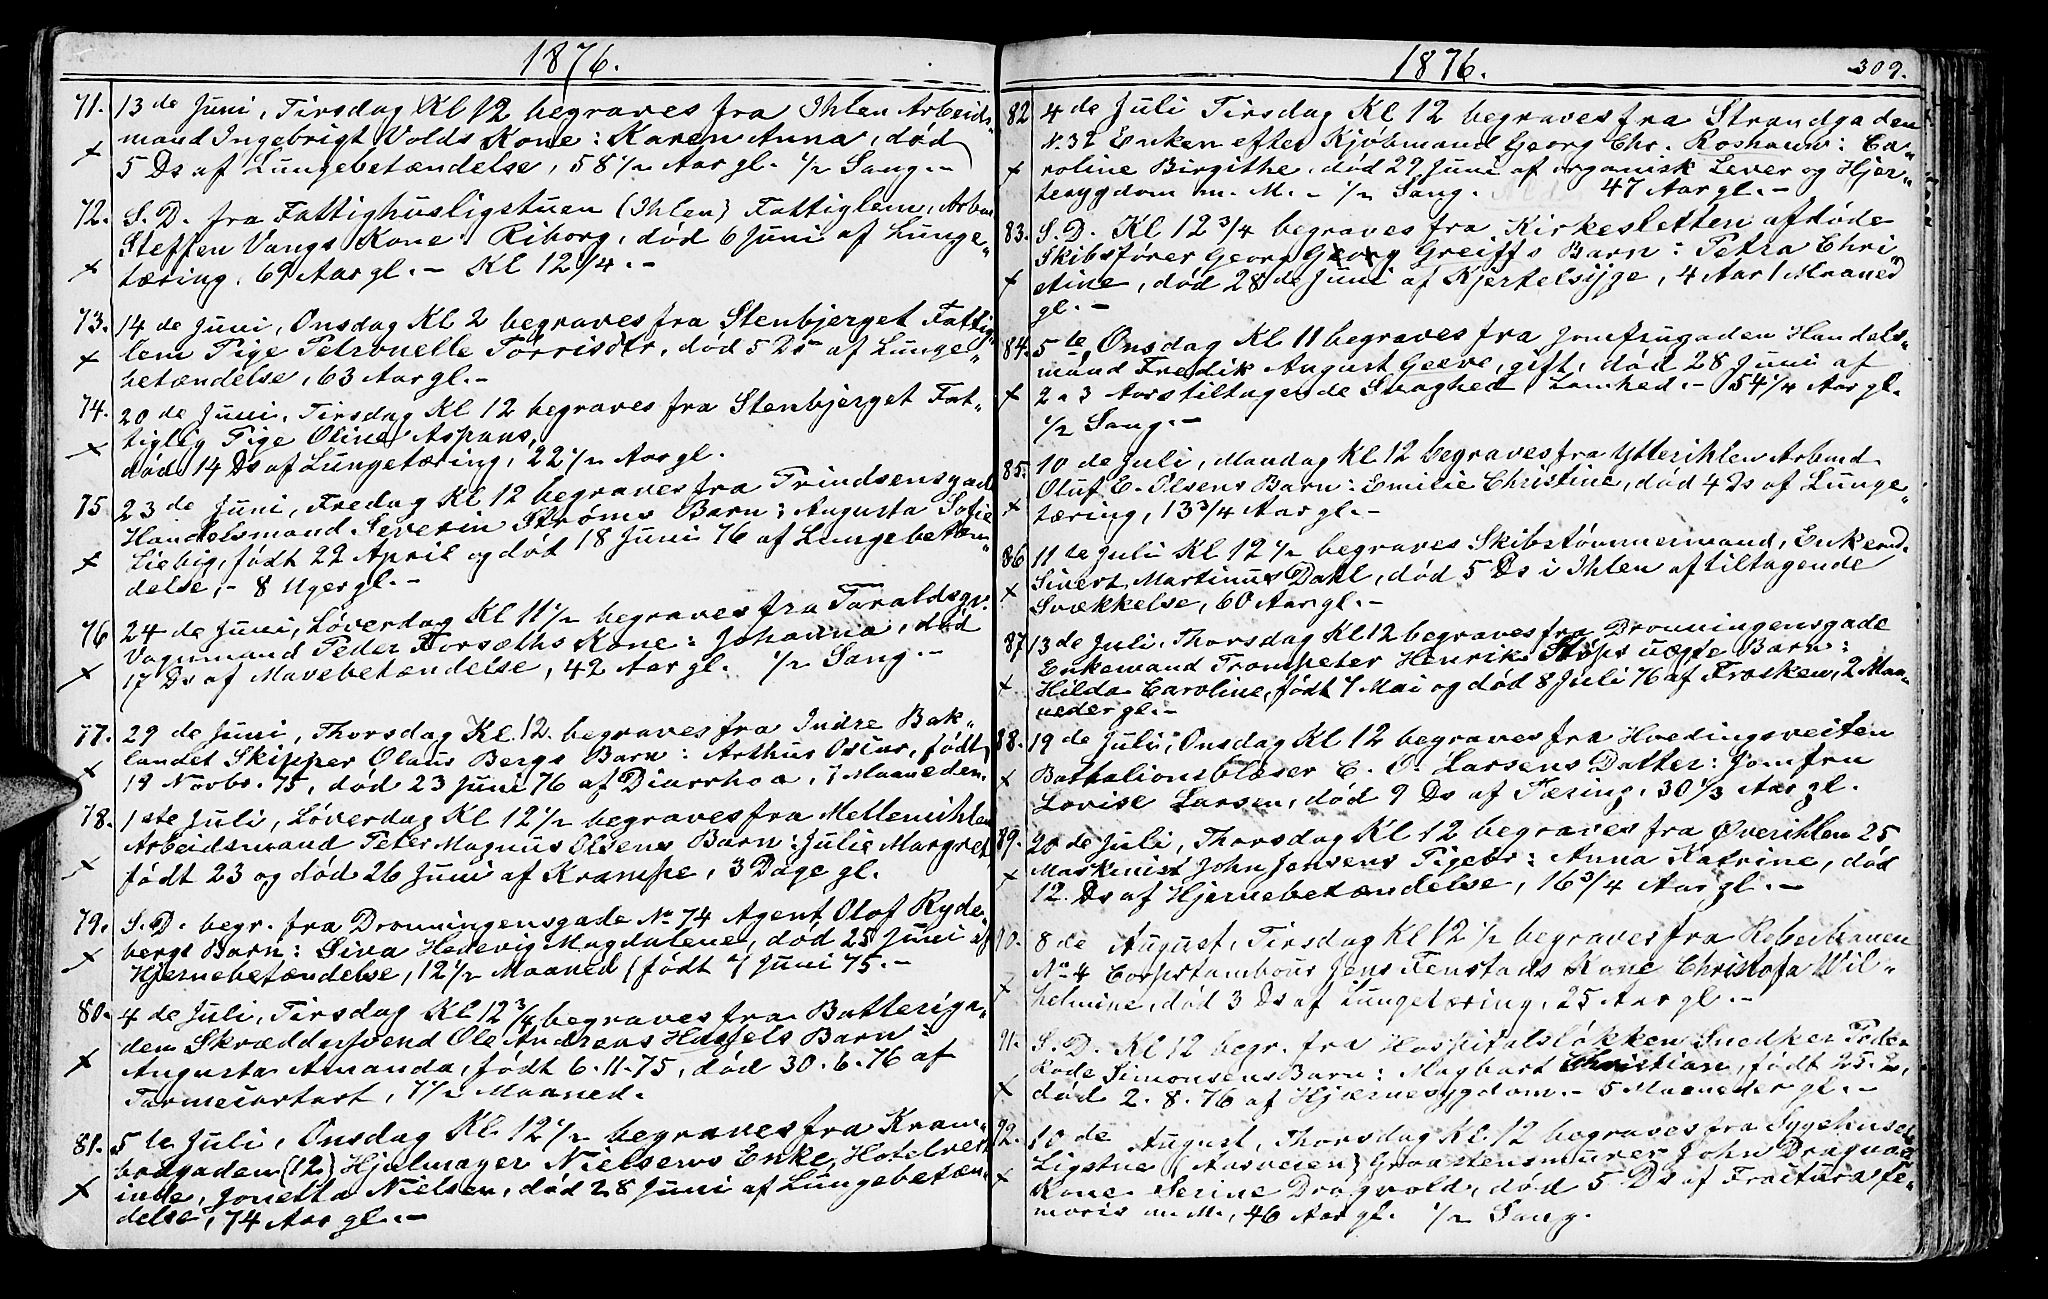 1876.
71. 13de Juni, Tirsdag Kl 12 begraves fra Ihlen Arbeids-
mand Ingebrigt Volds Kone: Karen Anna, død
x 5 Ds af Lungebetændelse, 58 1/2 Aar gl. 1/2 Sang.-
72. S. D. fra Fattighusligstuen (Ihlen) Fattiglem, Arbm
Steffen Vangs Kone Riborg, død 6 Juni af Lunge-
x tæring. 69 Aar gl.- Kl 12 1/4.-
73. 14de Juni, Onsdag Kl 2 begraves fra Stenbjerget Fattig-
x lem Pige Petronelle Torrisdtr, død 5 Ds af Lunge-
betændelse, 63 Aar gl.-
74. 20de Juni, Tirsdag Kl 12 begraves fra Stenbjerget Fat-
x tiglig Pige Oline Aspaas,
død 14 Ds af Lungetæring, 22 1/2 Aar gl.
75 23de Juni, Fredag Kl 12 begraves fra Prindsensgad
Handelsmand Severin Strøms Barn: Augusta Sofie
x Liebig, født 22 April og død 18 Juni 76 af Lungebetæn-
delse,- 8 Uger gl.-
76 24de Juni, Løverdag Kl 11 1/2 begraves fra Taraldsgr.
Vognmand Peder Forsæths Kone: Johanna, død
x 17 Ds af Mavebetændelse, 42 Aar gl. 1/2 Sang-
77. 29de Juni, Thorsdag Kl. 12. begraves fra Indre Bak-
landet Skipper Olaus Bergs Barn: Arthur Oscar, født
x 19 Novbr. 75, død 23 Juni 76 af Diarrhoa, 7 Maaneder.
78. 1ste Juli, Løverdag Kl 12 1/2 begraves fra Mellemihlen
Arbeidsmand Peter Magnus Olsens Barn: Julie Margret,
x født 23 og død 26 Juni af Krampe, 3 Dage gl.
79. S. D. begr. fra Dronningensgade No 74 Agent, Olof Ryde-
x bergs Barn: Siva Hedevig Magdalene, død 25 Juni af
Hjernebetændelse, 12 1/2 Maaned (født 7 Juni 75.-
80. 4de Juli, Tirsdag Kl 12 3/4 begraves fra Batteriga-
den Skræddersvend Ole Andreas Hassels Barn:
x Augusta Amanda, født 6-11-75, død 30.6.76 af
Tarmcatart, 7 1/2 Maaned.
81. 5te Juli, Onsdag Kl 12 1/2 begraves fra Kram-
bodgaden (12) Hjulmager Nielsens Enke, Hotelvert-
x inde, Jonetta Nielsen, død 28 Juni af Lungebetæn-
delse, 74 Aar gl.-
1876. 309.
82 4de Juli Tirsdag Kl 12 begraves fra Strandgaden
N. 32 Enken efter Kjøbmand Georg Chr. Roshauw: Ca-
x roline Birgithe, død 29 Juni af organisk Lever og Hjer-
tesygdom m. M.- 1/2 Sang. 47 Aar gl.-
83. S. D. Kl 12 3/4 begraves fra Kirkesletten afdøde
Skibsfører Georg Georg Greiffs Barn: Petra Chri
x stine, død 28de Juni af Kjertelsyge, 4 Aar 1 Maaned
gl.-
84. 5te, Onsdag Kl 11 begraves fra Jomfrugaden Handels-
mand Fredik August Geeve, gift, død 28 Juni af
x 2 a 3 Aars tiltagende Svaghed, Lamhed.- 54 1/4 Aar gl.
1/2 Sang.-
85. 10de Juli, Mandag Kl 12 begraves fra Ytterihlen Arbmd.
Oluf E. Olsens Barn: Emilie Christine, død 4 Ds af Lunge-
x tæring, 13 3/4 Aar gl.-
86 11te Juli Kl 12 1/2 begraves Skibstømmermand, Enkemd.
x Sivert Martinus Dahl, død 5 Ds i Ihlen af tiltagende
Svækkelse, 60 Aar gl.-
87 13de Juli, Thorsdag Kl 12 begraves fra Dronningensgade
Enkemand Trompeter Henrik Støps uægte Barn:
x Hilda Caroline, født 7 Mai og død 8 Juli 76 af Trosken, 2 Maa-
neder gl.-
88. 19de Juli, Onsdag Kl 12 begraves fra Hvedingsveiten
x Battalionsblæser C. O. Larsens Datter: Jomfru
Lovise Larsen, død 9 Ds af Tæring, 30 1/3 Aar gl.
89. 20de Juli, Thorsdag Kl 12 begraves fra Øverihlen 25
x Maskinist John Jensens Pigebr: Anna Katrine, død
12. Ds af Hjernebetændelse, 16 3/4 Aar gl.-
90. 8de August, Tirsdag Kl 12 1/2 begraves fra Reberbanen
No 4 Corpstambour Jens Fenstads Kone Christofa Wil-
x helmine, død 3 Ds af Lungetæring, 25 Aar gl.-
91. S. D. Kl 12 begr. fra Hospitalsløkken Snedker Peder
Rode Simonsens Barn: Hagbart Christian, født 25.2,
x død 2.8.76 af Hjernesygdom.- 5 Maaneder gl.-
92. 10de August, Thorsdag Kl 12 begraves fra Sygehusets
Ligstue (Aasveien) Graastensmurer John Dragvold
x Kone Serine Dragvold, død 5 Ds af Fractura fe-
moris m. M., 46 Aar gl. 1/2 Sang.